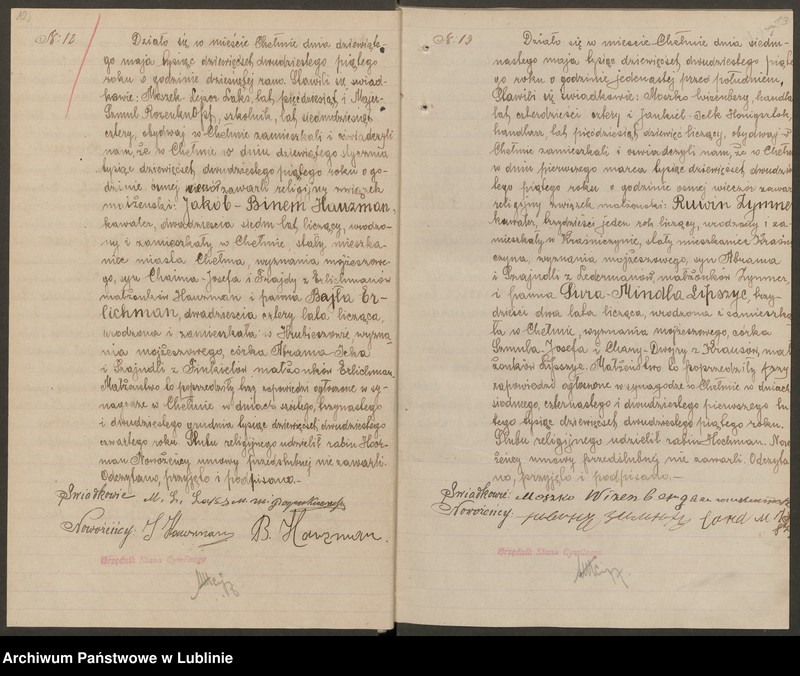 12.
№ 12
Działo się w mieście Chełmie dnia dziewiąte-
go maja tysiąc dziewięćset dwudziestego piątego
roku o godzinie dziesiątej rano. Stawili się świad-
kowie: Moszek-Lejzor Laks, lat pięćdziesiąt i Majer-
Szmul szkolnik, lat siedmdziesiąt
cztery, obydwaj w Chełmie zamieszkali i oświadczyli
nam, że w Chełmie w dniu dziewiątego stycznia
tysiąc dziewięćset dwudziestego piątego roku o go-
dzinie ósmej zawarli religijny związek
małżeński: Jakób-Binem Hauzman,
kawaler, dwadzieścia siedm lat liczący, urodzo-
ny i zamieszkały w Chełmie, stały mieszka-
niec miasta Chełma, wyznania mojżeszowe-
go, syn Chaima-Josefa i Frajdy z Erlichmanów
małżonków Hauzman i panna Bajła Er-
lichman, dwadzieścia cztery lata licząca,
urodzona i zamieszkała w Hrubieszowie, wyzna-
nia mojżeszowego, córka Abrama-Icka
i Szajndli z małżonków Erlichman.
Małżeństwo to poprzedziły trzy zapowiedzi ogłoszone w sy-
nagodze w Chełmie w dniach szóstego, trzynastego
i dwudziestego grudnia tysiąc dziewięćset dwudziestego
czwartego roku. Ślubu religijnego udzielił rabin Hoch-
man. Nowożeńcy umowy przedślubnej nie zawarli.
Odczytano, przyjęto i podpisano.—
Świadkowie M. L. Laks
Nowożeńcy: J Hauzman B. Hauzman.
Urzędnik Stanu Cywilnego
13
№ 13
Działo się w mieście Chełmie dnia siedm-
nastego maja tysiąc dziewięćset dwudziestego piąte-
go roku o godzinie jedenastej przed południem.
Stawili się świadkowie: Moszko Wizenberg, handlarz
lat czterdzieści cztery i Jankiel-Icek Honigsztok,
handlarz, lat pięćdziesiąt dziewięć liczący, obydwaj w
Chełmie zamieszkali i oświadczyli nam, że w Chełmie
w dniu pierwszego marca tysiąc dziewięćset dwudzies-
tego piątego roku o godzinie ósmej wieczór zawarli
religijny związek małżeński: Ruwin Zymner
kawaler, trzydzieści jeden rok liczący, urodzony i za-
mieszkały w Kraśniczynie, stały mieszkaniec Kraśni-
czyna, wyznania mojżeszowego, syn Abrama
i Szajndli z Ledermanów, małżonków Zymner,
i panna Sura-Mindla Lipszyc, trzy-
dzieści dwa lata licząca, urodzona i zamieszka-
ła w Chełmie, wyznania mojżeszowego, córka
Szmula-Josefa i Chany-Dwojry z Krauzów, mał-
żonków Lipszyc. Małżeństwo to poprzedziły trzy
zapowiedzi ogłoszone w synagodze w Chełmie w dniach
siódmego, czternastego i dwudziestego pierwszego lu-
tego tysiąc dziewięćset dwudziestego piątego roku.
Ślubu religijnego udzielił rabin Hochman. Nowo-
żeńcy umowy przedślubnej nie zawarli. Odczyta-
no, przyjęto i podpisano.—
Świadkowie: Moszko Wizenberg
Nowożeńcy:
Urzędnik Stanu Cywilnego
Archiwum Państwowe w Lublinie